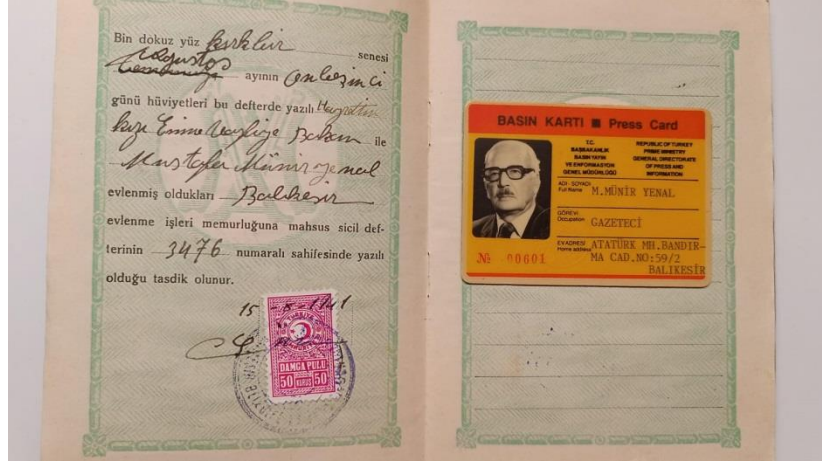 Bin dokuz yüz kırkbir senesi
Ağustos
ayının onbeşinci
günü hüviyetleri bu defterde yazılı Hayrettin
kızı Emine Bakan ile
Mustafa Münir Yenal
evlenmiş oldukları Balıkesir
evlenme işleri memurluğuna mahsus sicil def-
terinin 3476 numaralı sahifesinde yazılı
olduğu tasdik olunur.
15-8-1941
DAMGA PULU
50 KURUŞ 50
BASIN KARTI ■ Press Card
T.C.
BAŞBAKANLIK
BASIN YAYIN
VE ENFORMASYON
GENEL MÜDÜRLÜĞÜ
REPUBLIC OF TURKEY
PRIME MINISTRY
GENERAL DIRECTORATE
OF PRESS AND
INFORMATION
ADI - SOYADI
Full Name M.MÜNİR YENAL
GÖREVİ
Occupation GAZETECİ
EV ADRESİ ATATÜRK MH.BANDIR-
Home address MA CAD.NO:59/2
BALIKESİR
№ 00601